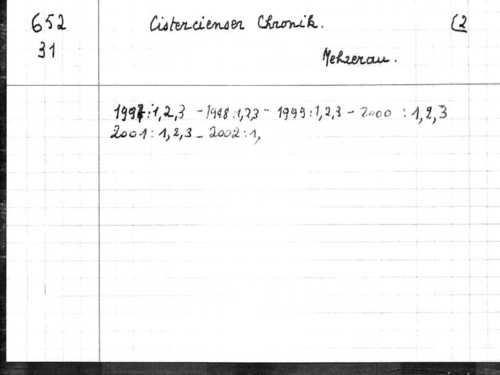 652 Cistercienser Chronik. (2
31 Mehrerau.
1997:1,2,3 - 1998:1,2,3 - 1999:1,2,3 - 2000 : 1,2,3
2001 : 1,2,3 - 2002 : 1,